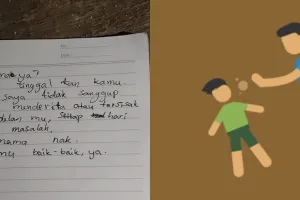 ya?
tinggal kan kamu.
saya tidak sanggup
menderita atau tersisat
dalam mu, setiap hari
masalah.
nama nak.
baik-baik, ya.